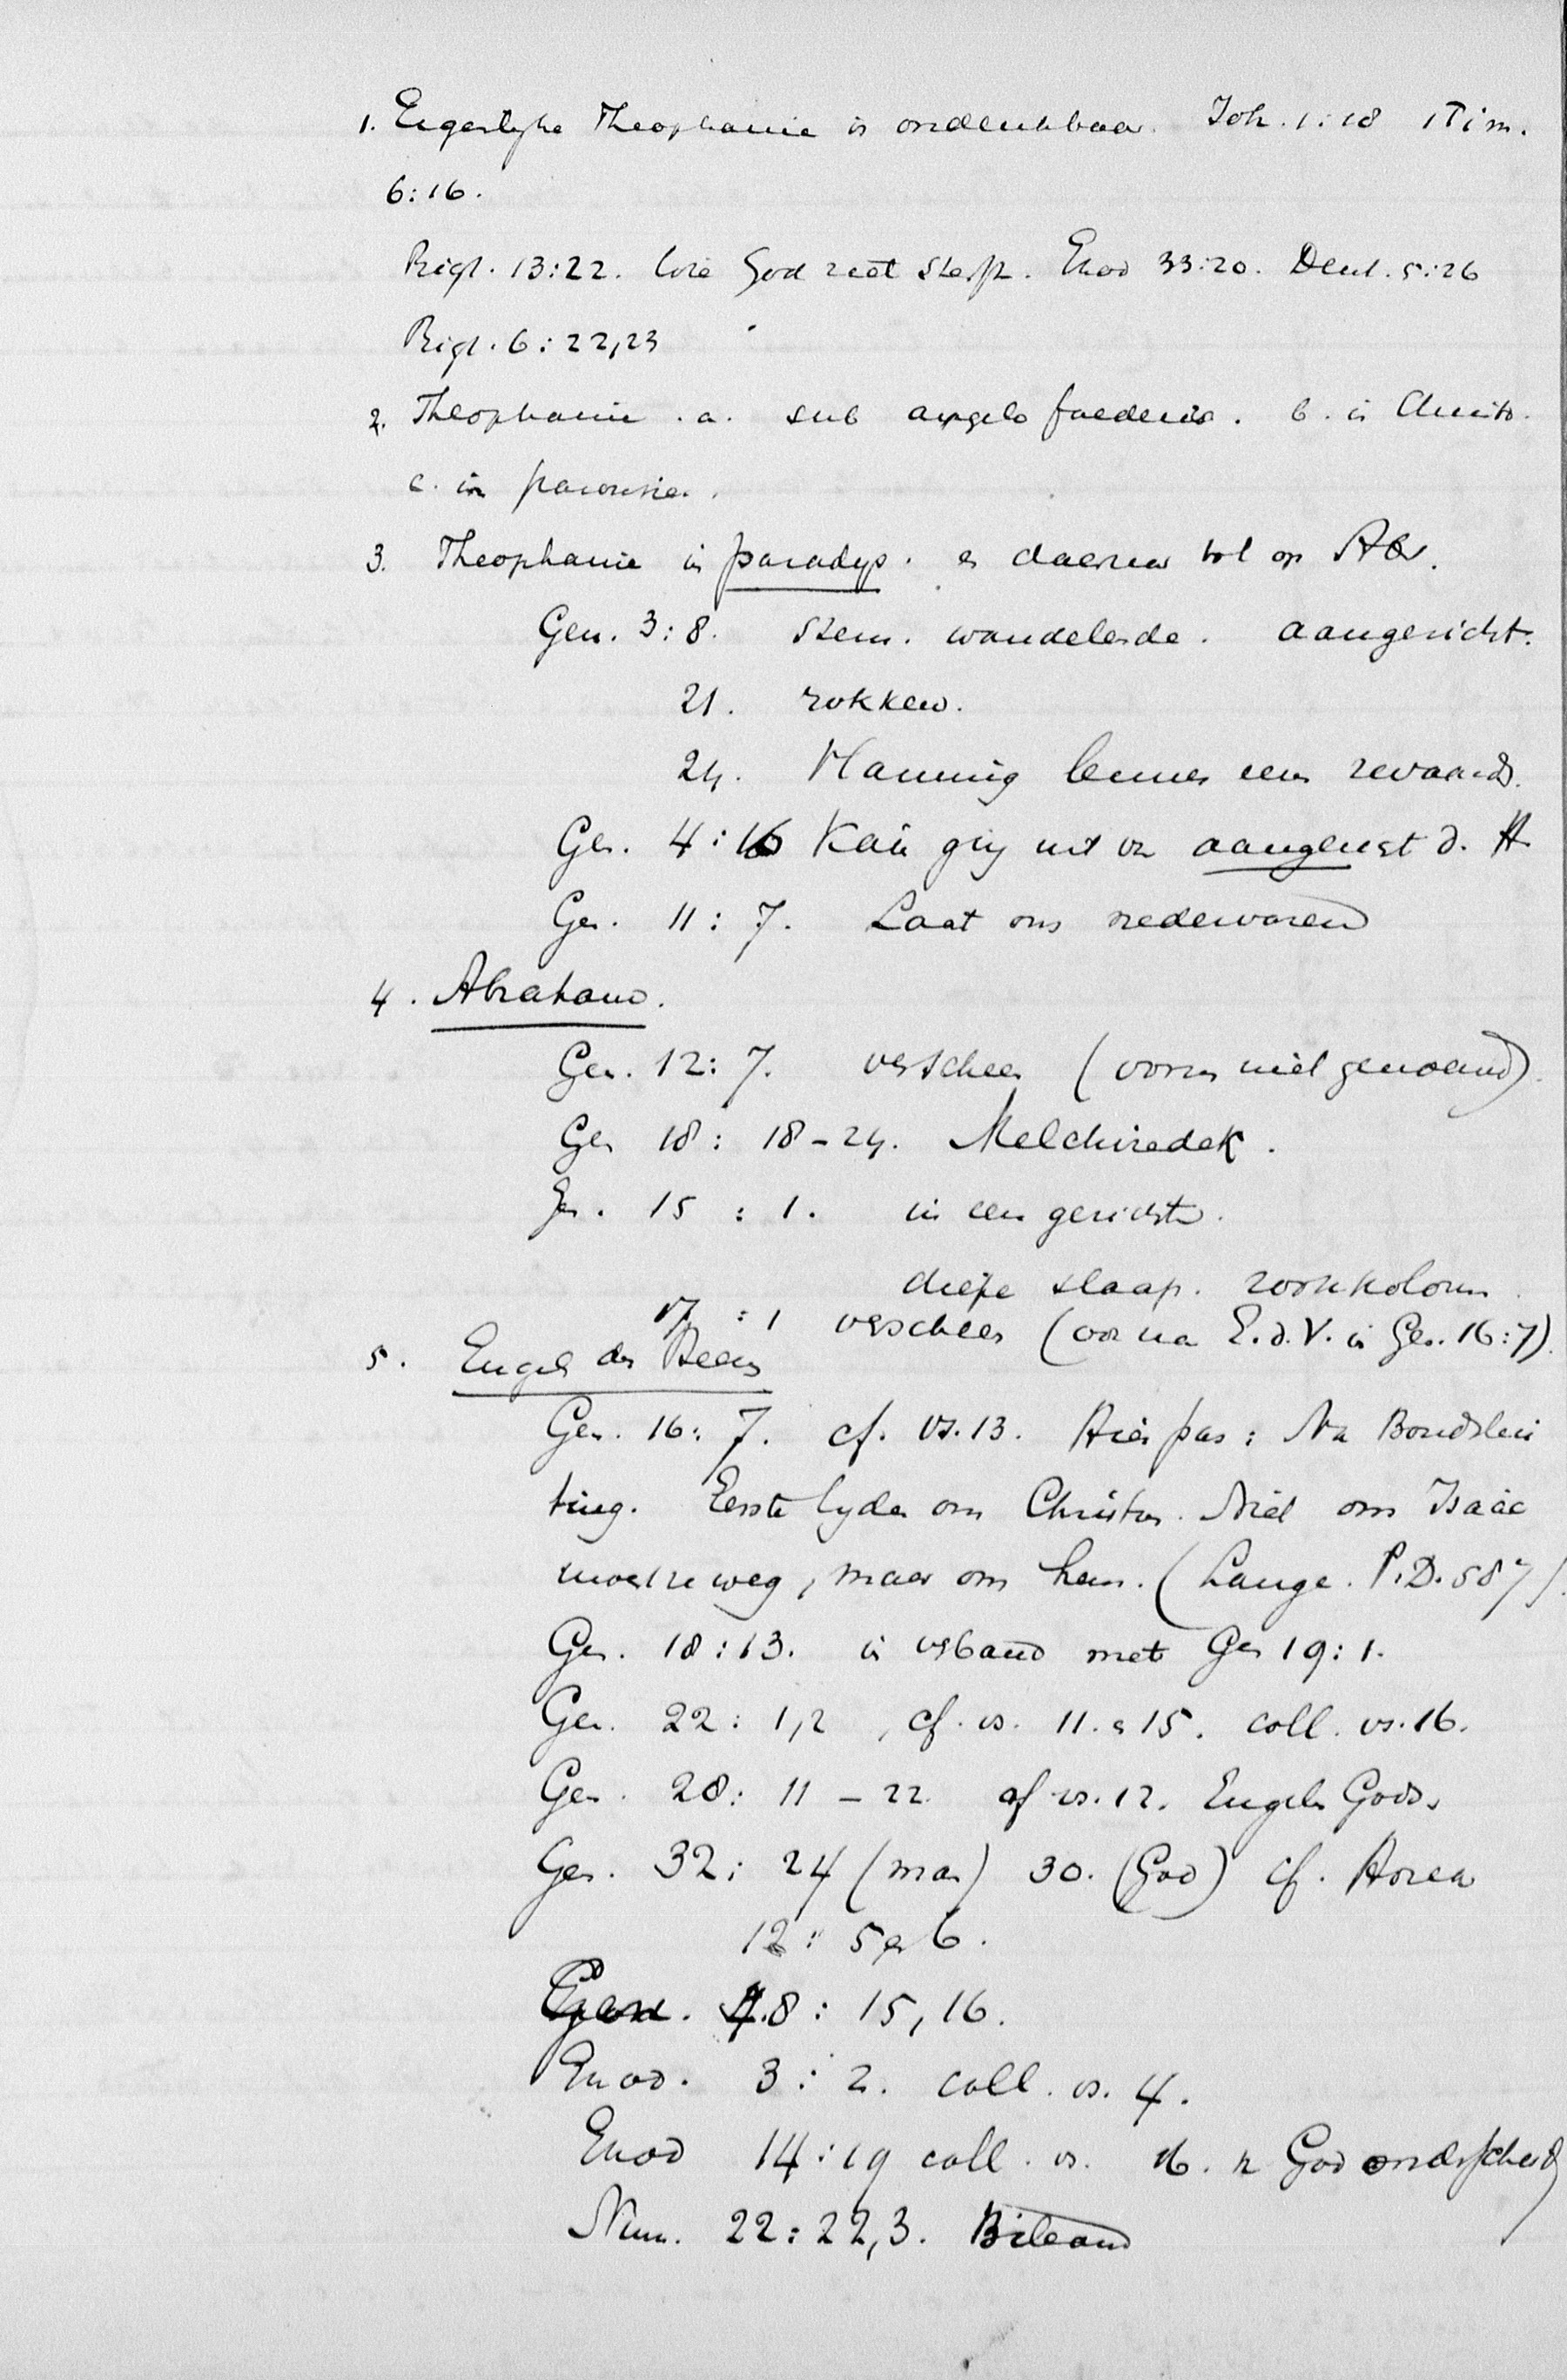 1. Eigenlyke Theophanie is ondenkbaar. Joh. 1:18 1 Tim.
6:16.
Rigt. 13:22. Wie God ziet sterft. Exod 33:20. Deut. 5:26
Rigt. 6:22,23
2. Theophanie. a. sub angelo foederis. b. in Christo.
c. in parousie.
3. Theophanie in paradys. en daarna tot op Abr.
Gen. 3:8. Stem. wandelende. aangezicht.
21. rokken.
24. Manning Cerub een zwaard.
Gen. 4:16 Kaïn ging uit van aangezigt d. H
Gen. 11:7. Laat ons nedervaren
4. Abraham.
Gen. 12:7. verscheen (vorm niet genoemd).
Gen 18:18-24. Melchizedek.
Gen. 15:1. in een gezicht.
diepe slaap. rookkolom.
17:1 verscheen (vorm na E.d.V. in Gen. 16:7).
5. Engel des Heeren
Gen. 16:7. cf. vs. 13. Hier pas: Na Bondslui
ting. Eerste lyden om Christus. Niet om Isaac
moest ze weg, maar om hem. (Lange. P.D. 587)
Gen. 18:13. in verband met Gen 19:1.
Gen. 22:1,2, cf. vs. 11. en 15. coll. vs. 16.
Gen. 28:11-22. cf vs. 12. Engelen Gods.
Gen. 32:24 (man) 30. (God) cf. Hosea
12:5 en 6.
Gen. 48:15,16.
Exod. 3:2. coll. vs. 4.
Exod 14:19 coll. vs. 16. God onderscheid
Num. 22:22,3. Bileam